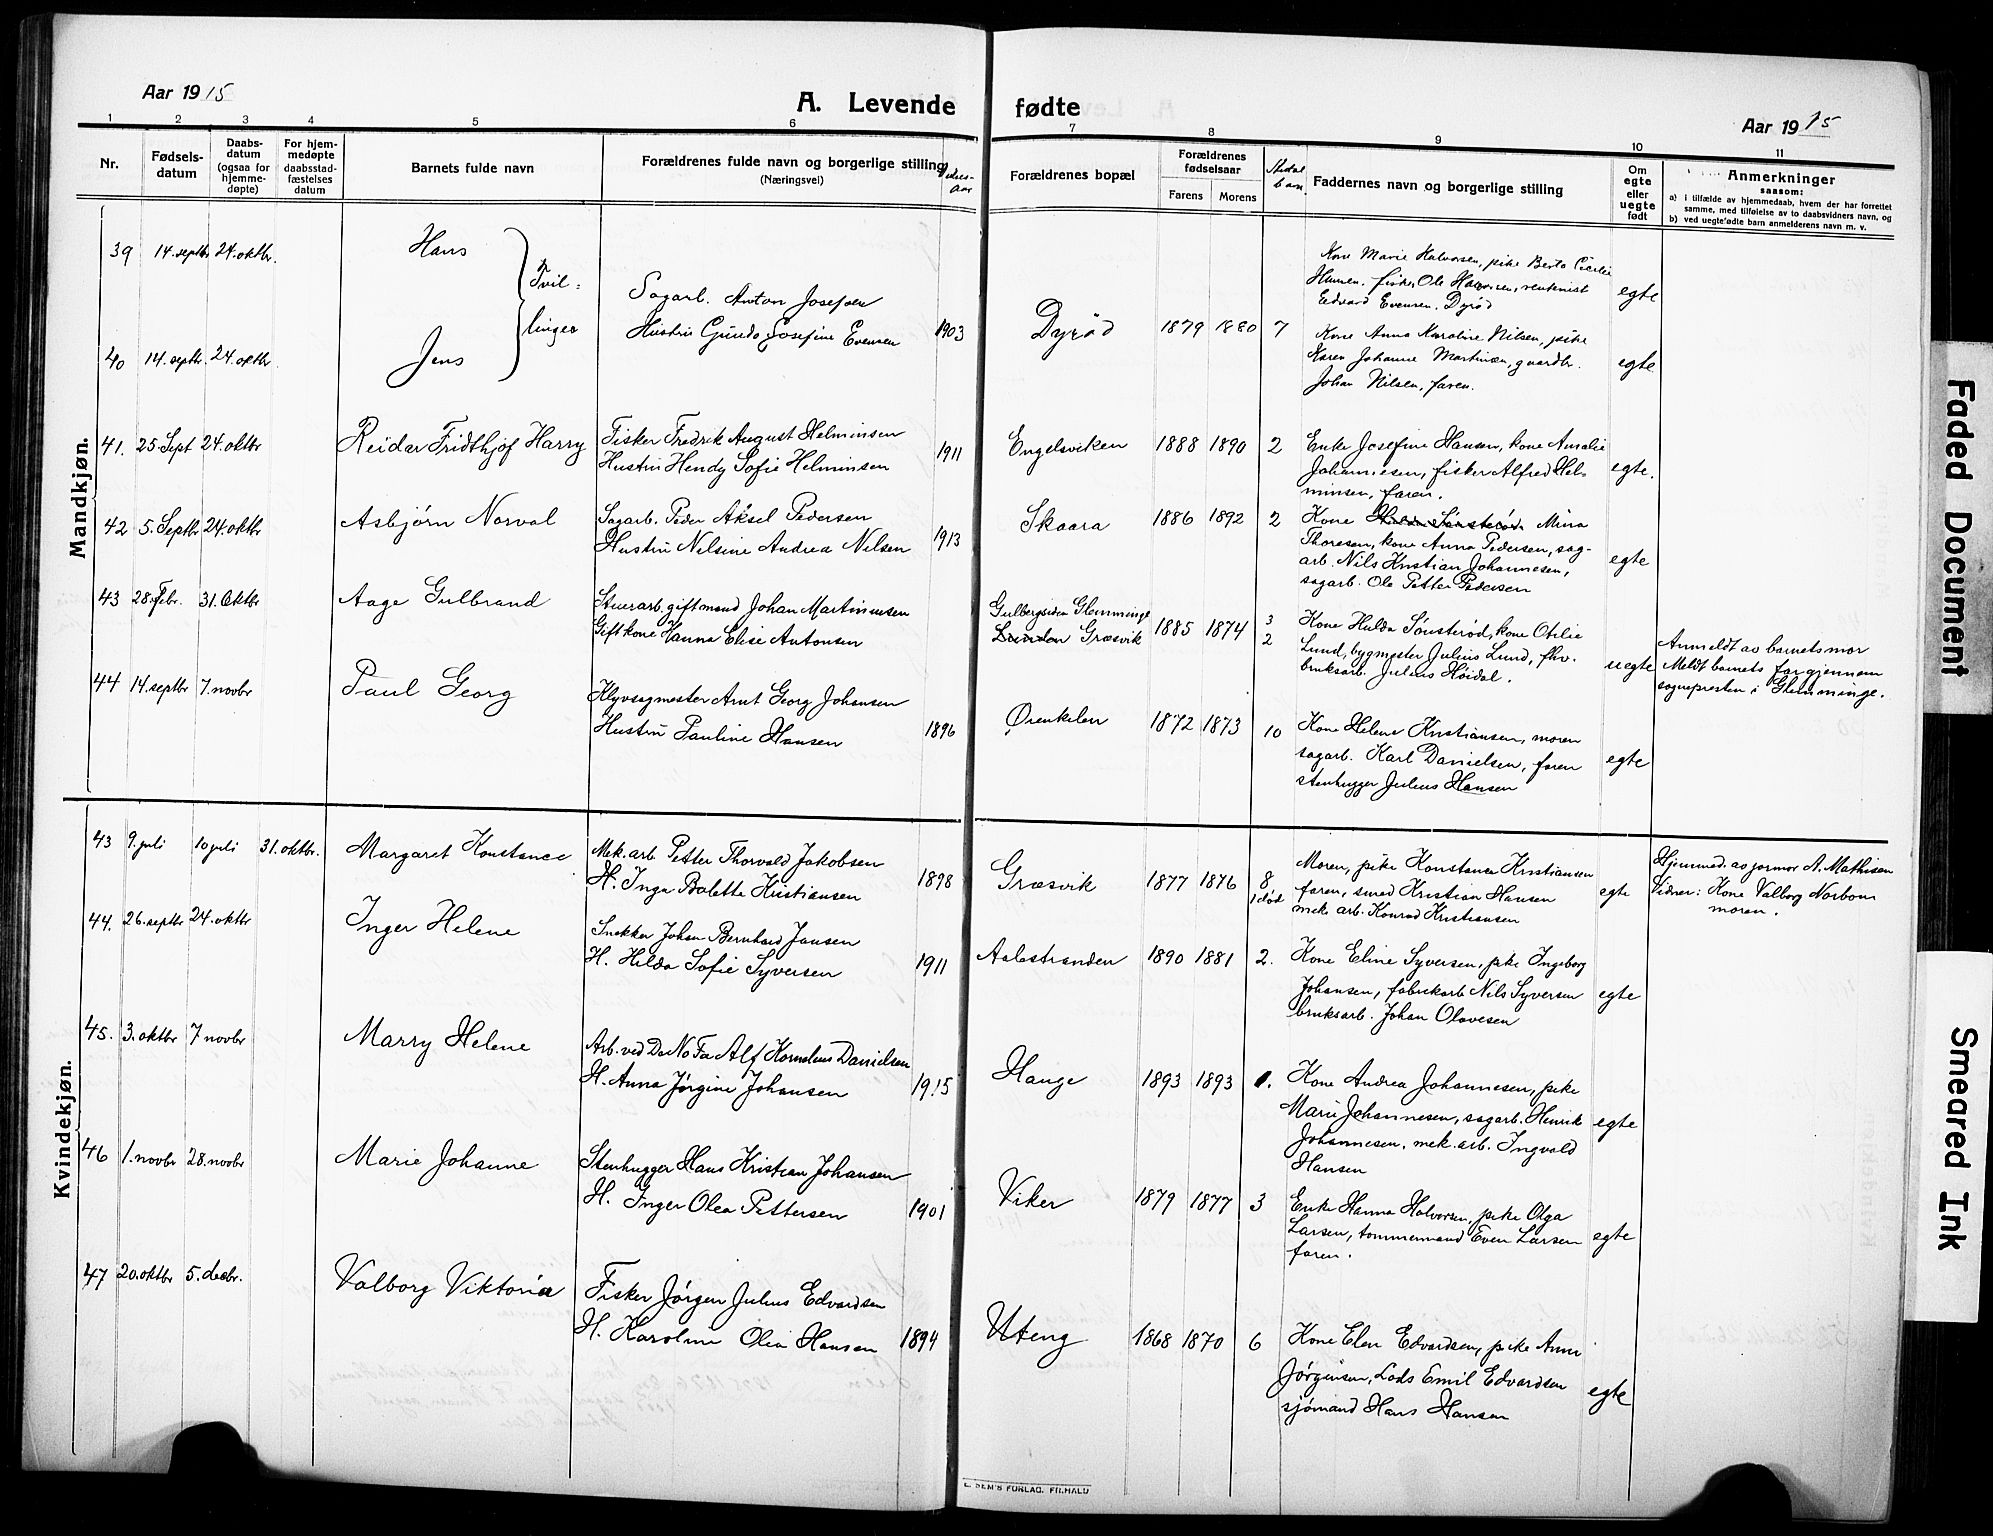 Aar 1915
A. Levende
fødte
Aar 1915
1 2 3 4 5 6 7 8 9 10 11
Nr.
Fødsels-
datum
Daabs-
datum
(ogsaa for
hjemme-
døpte)
For hjem-
medøpte
daabsstad-
fæstelses
datum
Barnets fulde navn
Forældrenes fulde navn og borgerlige stilling
(Næringsvei)
Forældrenes bopæl
Forældrenes
fødselsaar
Farens
Morens
Faddernes navn og borgerlige stilling
Om
egte
eller
uegte
født
Anmerkninger
saasom:
a) i tilfælde av hjemmedaab, hvem der har forrettet
samme, med tilføielse av to daabsvidners navn, og
b) ved uegtefødte barn anmelderens navn m. v.
Mandkjøn.
39 14. septbr 24. oktbr.
Hans
Tvil-
linger
Sagarb. Anton Josefsen
Hustru Gunda Josefine Evensen 1903
Dyrød 1879 1880 7
Kone Marie Halvorsen, pike Berta Cecilie
Hansen, fisker Ole Halvorsen, rentenist
Edvard Evensen. Dyrød
egte
40 14. septbr. 24. oktbr.
Jens
Kone Anna Karoline Nilsen, pike
Karen Johanne Martinsen, gaardbr.
Johan Nilsen, faren.
egte
41. 25. Sept 24. oktbr
Reidar Fridthjof Harry
Fisker Fredrik August Helminsen
Hustru Hendy Sofie Helminsen 1911
Engelsviken 1888 1890 2
Enke Josefine Hansen, kone Amalie
Johannesen, fisker Alfred Hel-
minsen, faren.
egte.
42 5. Septbr 24. oktbr
Asbjørn Norval
Sagarb. Peder Aksel Pedersen
Hustru Nilsine Andrea Nilsen 1913
Skaara 1886 1892 2
Kone Hulda Sønsterød. Mina
Thoresen, kone Anna Pedersen, sag-
arb. Nils Kristian Johannesen,
sagarb. Ole Petter Pedersen
egte
43 28. Febr. 31. Oktbr
Aage Gulbrand
Stuerarb. giftmand Johan Martinsen
Gift kone Hanna Elise Antonsen
Gulbergsiden Glemminge
Lunden Græsvik 1885 1874 3
2
Kone Hulda Sønsterød, kone Otilie
Lund, bygmester Julius Lund, fhv.
bruksarb. Julius Høidal.
uegte
Anmeldt av barnets mor
Meldt barnets far gjennem
sognepresten i Glemminge.
44 14. septbr 7. novbr
Paul Georg
Klyvsagmester Arnt Georg Johansen
Hustru Pauline Hansen 1896
Ørenkilen 1872 1873 10
Kone Helene Kristiansen, moren
sagarb. Karl Danielsen, faren
stenhugger Julius Hansen
egte
Kvindekjøn.
43 9. juli 10 juli 31. oktbr.
Margaret Konstance
Mek. arb. Petter Thorvald Jakobsen
H. Inga Bolette Kristiansen 1898
Græsvik 1877 1876 8
1 død
Moren, pike Konstance Kristiansen
faren, smed Kristian Hansen
mek. arb. Konrad Kristiansen
egte
Hjemmed. av jormor A. Mathisen
Vidner: Kone Valborg Norbom
moren.
44. 26. septbr 24. oktbr
Inger Helene
Snekker Johan Bernhard Jansen
H. Hilda Sofie Syversen 1911
Aalestranden 1890 1881 2.
Kone Eline Syversen, pike Ingeborg
Johansen, fabrikarb Nils Syversen
bruksarb. Johan Olavesen
egte
45. 3. oktbr 7 novbr
Marry Helene
Arb. ved De No Fa Alf Kornelius Danielsen
H. Anna Jørgine Johansen 1915
Hauge 1893 1893 1.
Kone Andrea Johannesen, pike
Marie Johannesen, sagarb. Henrik
Johannesen, mek. arb. Ingvald
Hansen
egte
46 1. novbr 28. novbr
Marie Johanne
Stenhugger Hans Kristian Johansen
H. Inger Olea Pettersen 1901
Viker 1879 1877 3
Enke Hanna Halvorsen, pike Olga
Larsen, tømmermand Even Larsen
faren.
egte
47 20. oktbr 5. decbr.
Valborg Viktoria
Fisker Jørgen Julius Edvardsen
H. Karoline Olea Hansen 1894
Uteng 1868 1870 6
Kone Elen Edvardsen, pike Anni
Jørgensen, Lods Emil Edvardsen
sjømand Hans Hansen
egte
E. SEM'S FORLAG, FR.HALD
Faded Document
Smeared Ink